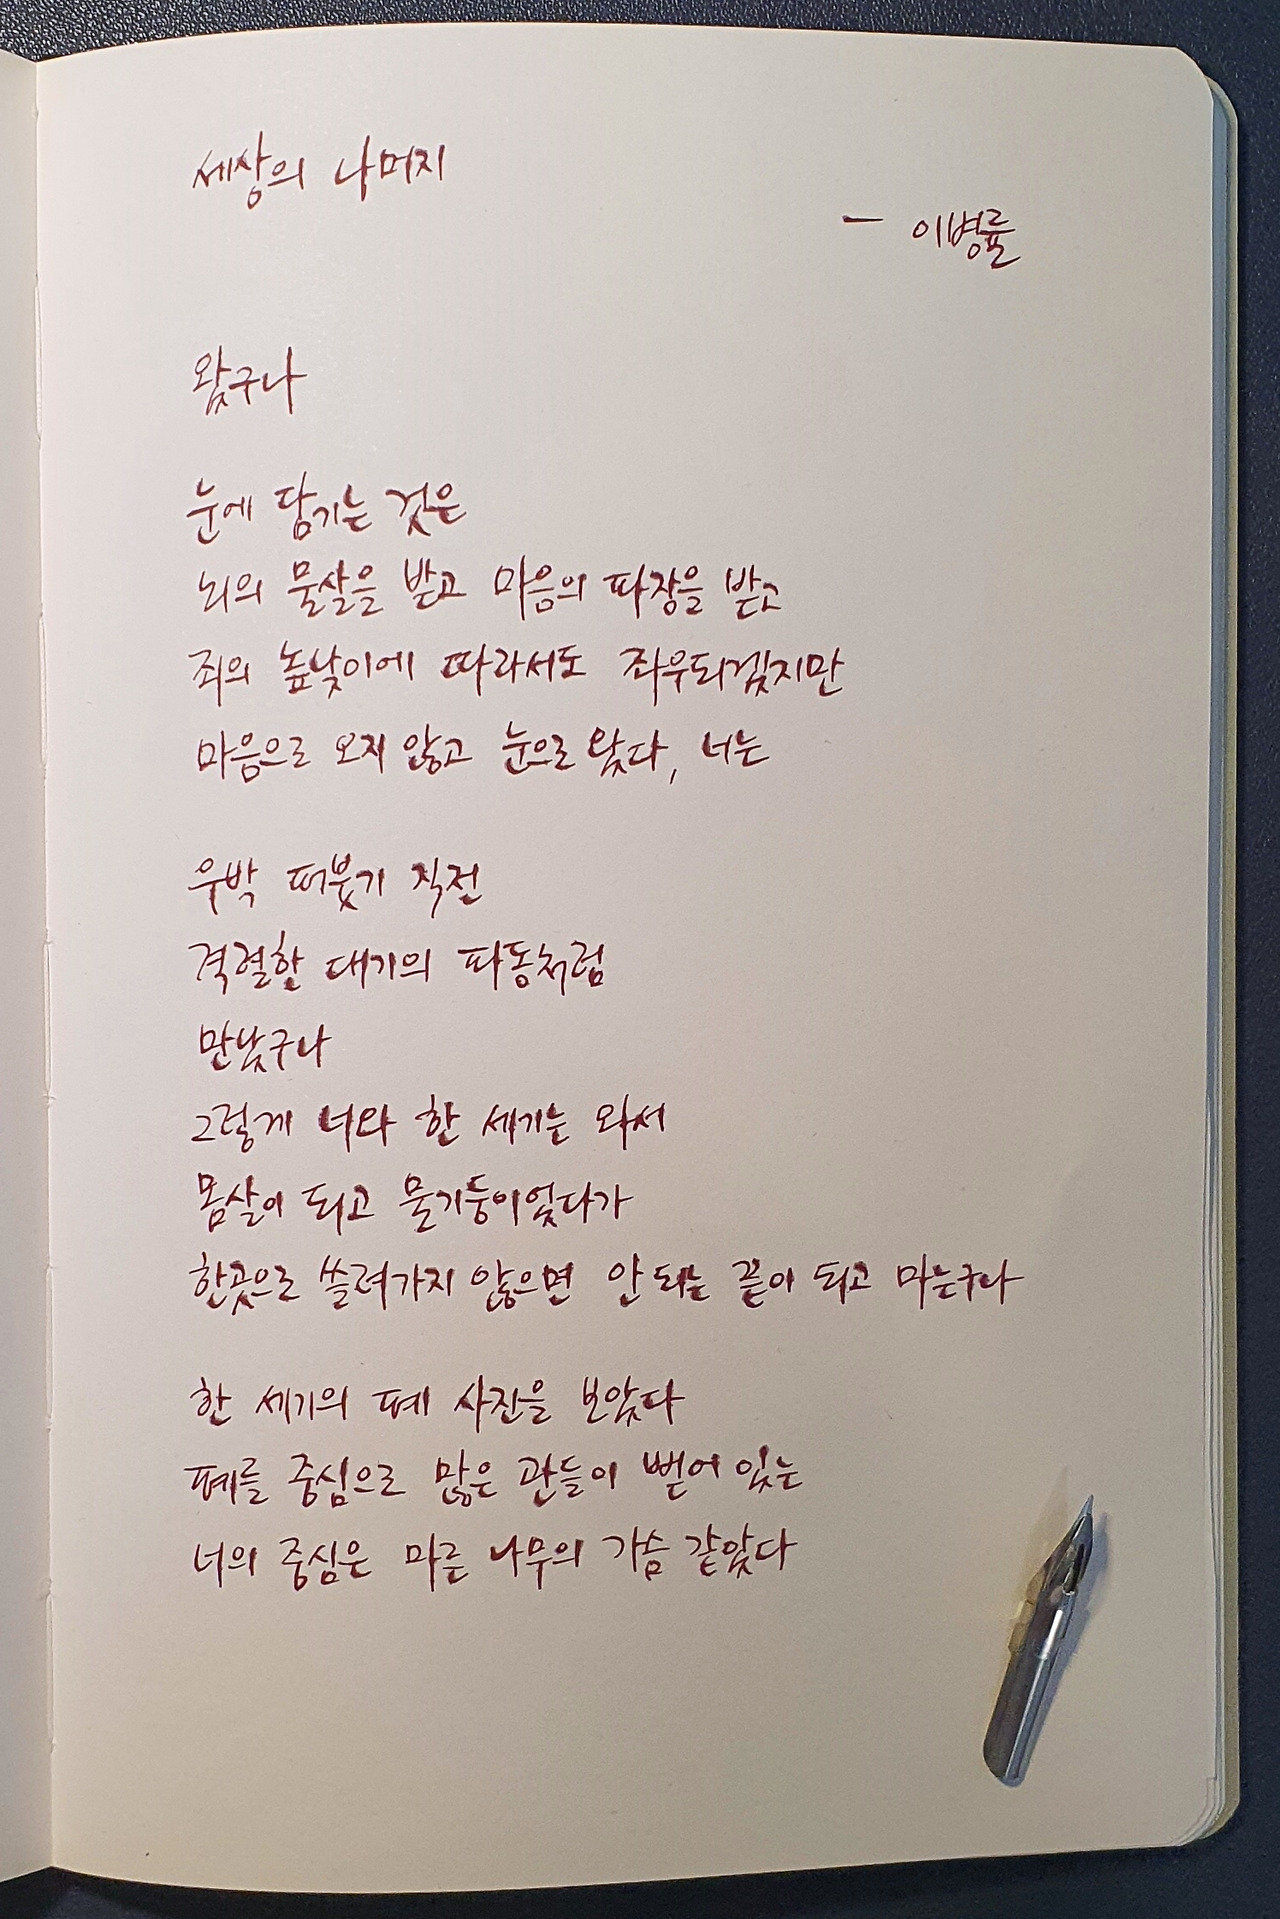 세상의 나머지
- 이병률
왔구나
눈에 담기는 것은
뇌의 물살을 받고 마음의 파장을 받고
죄의 높낮이에 따라서도 좌우되겠지만
마음으로 오지 않고 눈으로 왔다, 너는
우박 퍼붓기 직전
격렬한 대기의 파동처럼
만났구나
그렇게 너와 한 세기는 와서
몸살이 되고 물기둥이었다가
한곳으로 쓸려가지 않으면 안 되는 끝이 되고 마는구나
한 세기의 폐 사진을 보았다
폐를 중심으로 많은 관들이 뻗어 있는
너의 중심은 마른 나무의 가슴 같았다